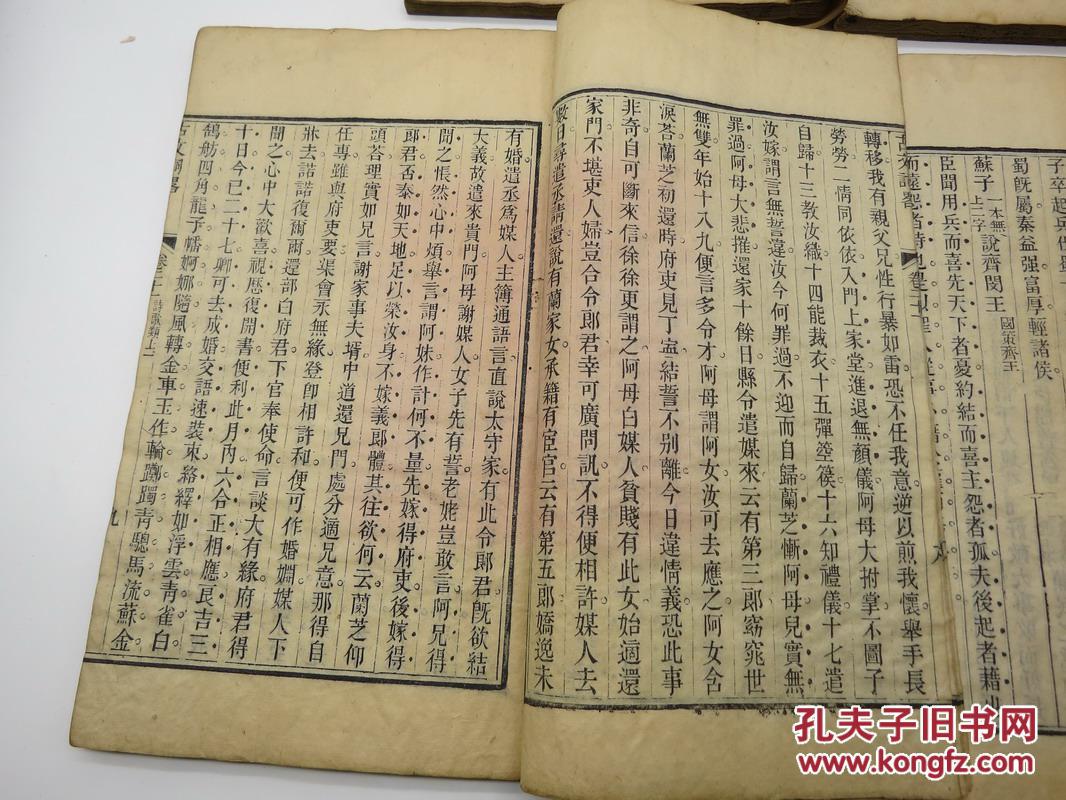 轉移我有親父兄性行暴如雷恐不任我意逆以煎我懷舉手長
勞勞二情同依依入門上家堂進退無顔儀阿母大拊掌不圖子
自歸十三教汝織十四能裁衣十五彈箜篌十六知禮儀十七遣
汝嫁謂言無誓違汝今何罪過不迎而自歸蘭芝慚阿母兒實無
罪過阿母大悲摧還家十餘日縣令遣媒來云有第三郎窈窕世
無雙年始十八九便言多令才阿母謂阿女汝可去應之阿女含
淚荅蘭芝初還時府吏見丁寧結誓不別離今日違情義恐此事
非奇自可斷來信徐徐更謂之阿母白媒人貧賤有此女始適還
家門不堪吏人婦豈合令郎君幸可廣問訊不得便相許媒人去
數日尋遣丞請還說有蘭家女承籍有宦官云有第五郎嬌逸未
有婚遣丞爲媒人主簿通語言直說太守家有此令郎君旣欲結
大義故遣來貴門阿母謝媒人女子先有誓老姥豈敢言阿兄得
聞之悵然心中煩舉言謂阿妹作計何不量先嫁得府吏後嫁得
郎君否泰如天地足以榮汝身不嫁義郎體其往欲何云蘭芝仰
頭荅理實如兄言謝家事夫壻中道還兄門處分適兄意那得自
任專雖與府吏要渠會永無緣登卽相許和便可作婚姻媒人下
牀去諾諾復爾爾還部白府君下官奉使命言談大有緣府君得
聞之心中大歡喜視歷復開書便利此月內六合正相應良吉三
十日今已二十七卿可去成婚交語速裝束絡繹如浮雲青雀白
鵠舫四角龍子幡婀娜隨風轉金車玉作輪躑躅青驄馬流蘇金
卷三十一
詩歌類上一
九
子卒起兵伐蜀
蜀旣屬秦益强富厚輕諸侯
蘇子一本無上二字說齊閔王國策齊王
臣聞用兵而喜先天下者憂約結而喜主怨者孤夫後起者藉
孔夫子旧书网
www.kongfz.com